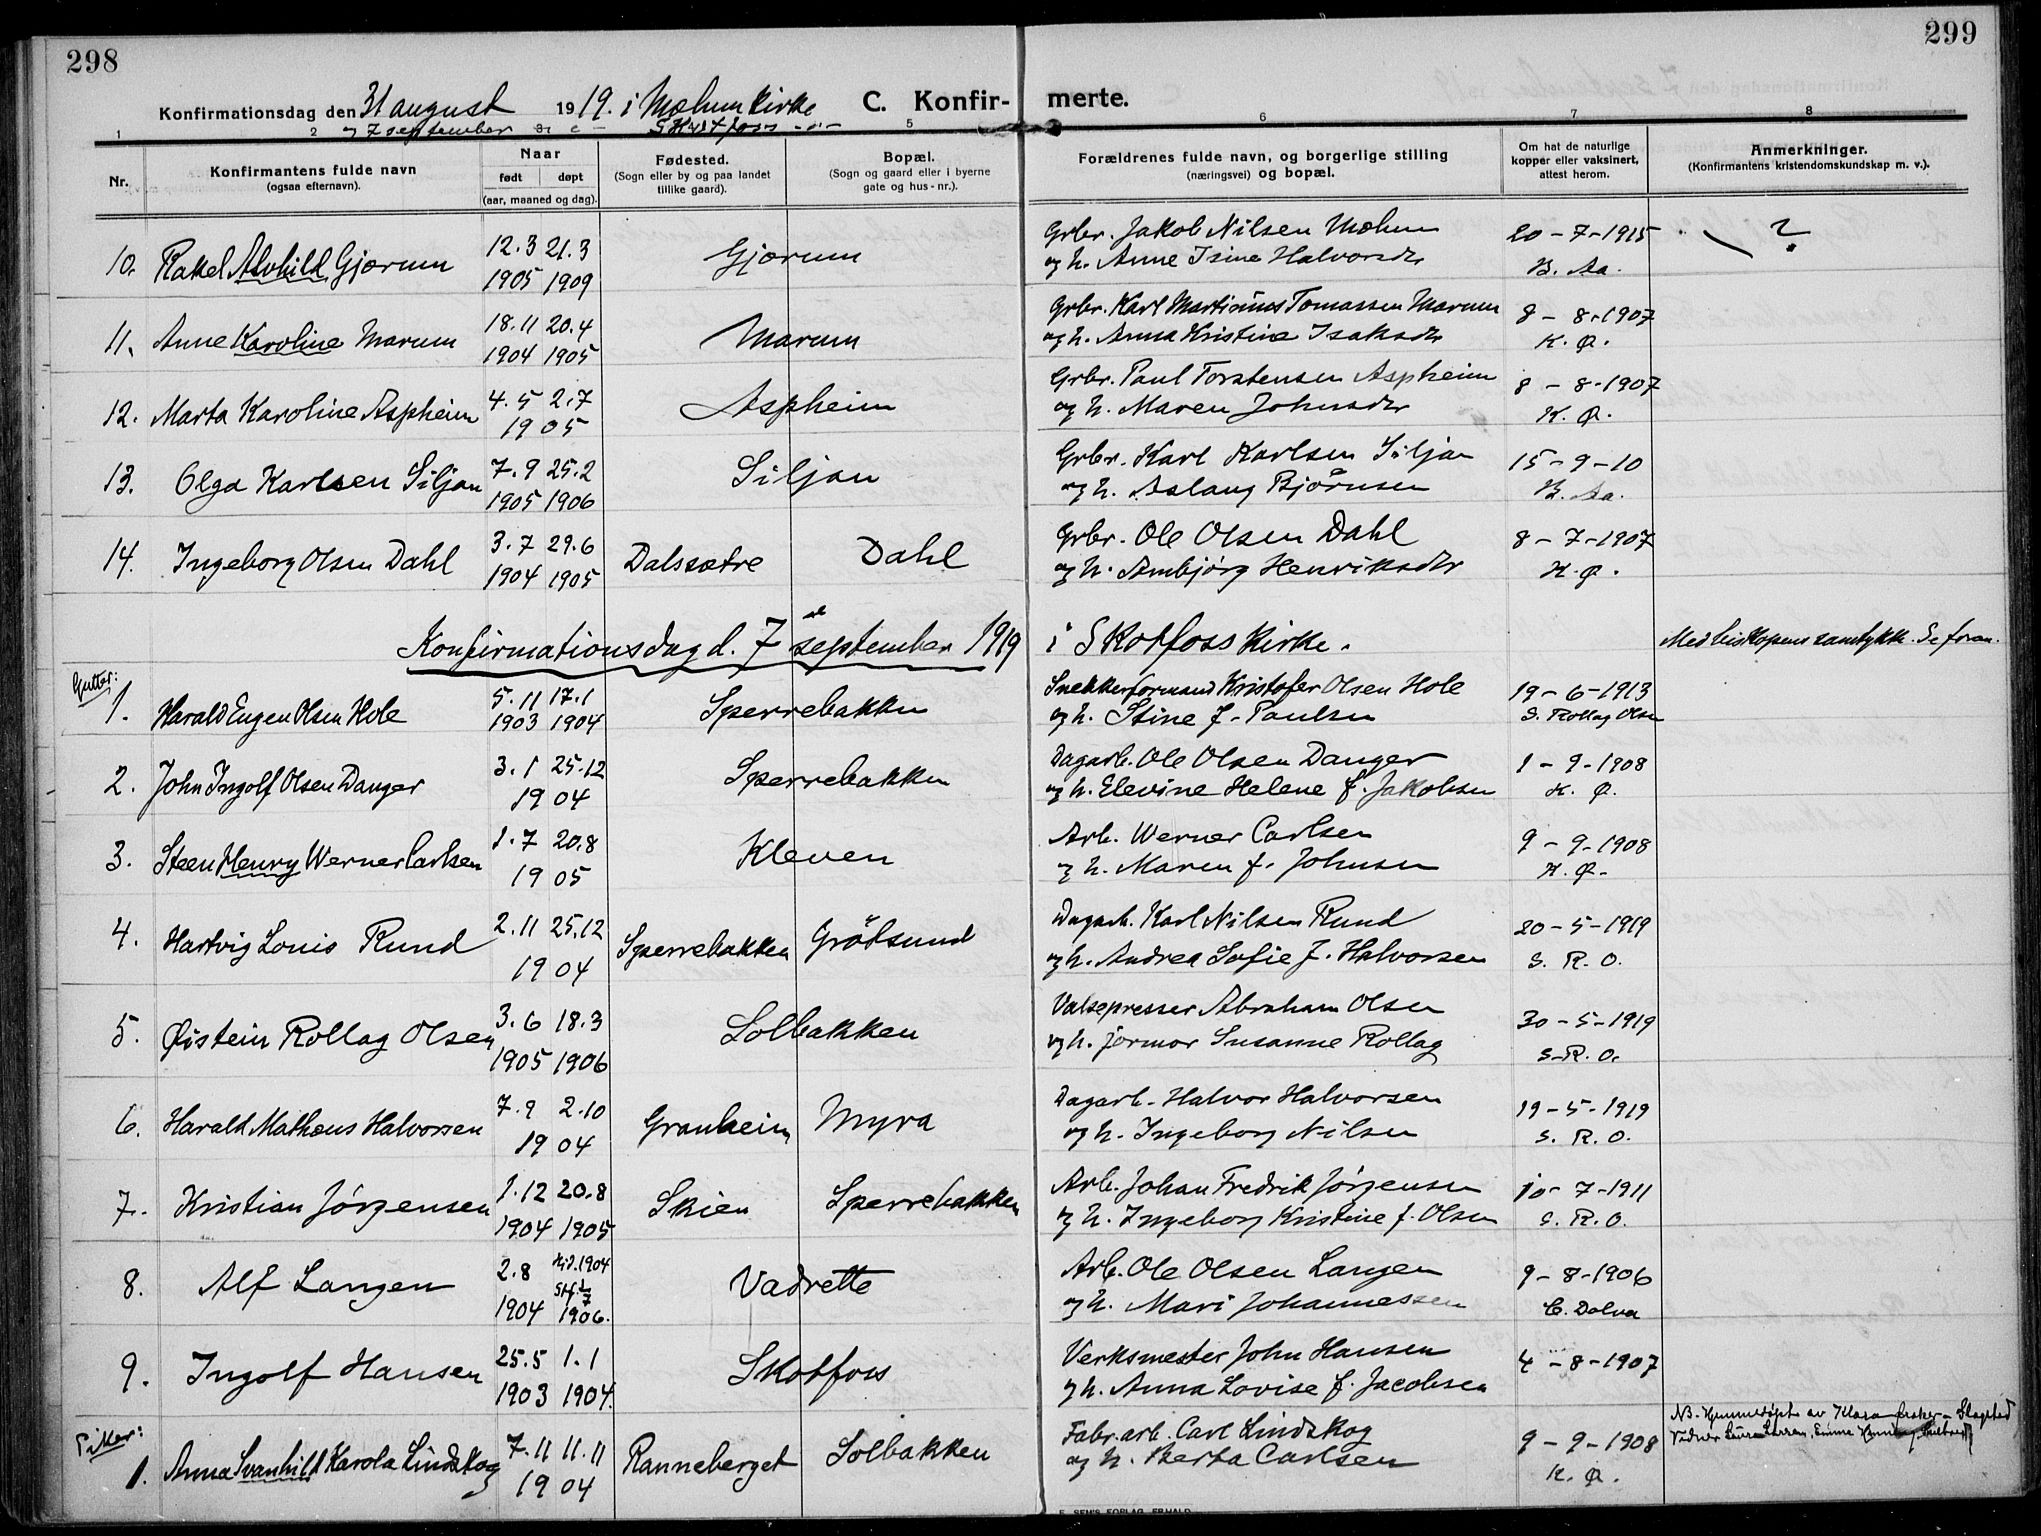 298
299
Konfirmationsdag den 31 august 1919. i Mælum kirke C. Konfir- merte.
og 7 september Skotfoss
1 2 5 6 7 8
Nr.
Konfirmantens fulde navn
(ogsaa efternavn).
Naar
født døpt
(aar, maaned og dag).
Fødested.
(Sogn eller by og paa landet
tillike gaard).
Bopæl.
(Sogn og gaard eller i byerne
gate og hus-nr.).
Forældrenes fulde navn, og borgerlige stilling
(næringsvei) og bopæl.
Om hat de naturlige
kopper eller vaksinert,
attest herom.
Anmerkninger.
(Konfirmantens kristendomskundskap m. v.).
10. Rakel Alvhild Gjærum 12.3 21.3 Gjærum Grbr. Jakob Nilsen Mælum 20-7-1915 ?
1905 1909 og h. Anne Isine Halvorsdr B. Aa.
11. Anne Karoline Marum 18.11 20.4 Marum Grbr. Karl Martinius Tomassen Marum 8-8-1907
1904 1905 og h. Anna Kristine Isaksdr K. Ø.
12. Marta Karoline Aspheim 4.5 2.7 Aspheim Grbr. Paul Torstensen Aspheim 8-8-1907
1905 og h. Maren Johnsdr K. Ø.
13. Olga Karlsen Siljan 7.9 25.2 Siljan Grbr. Karl Karlsen Siljan 15-9-10
1905 1906 og h. Aslaug Bjørnsen B. Aa.
14. Ingeborg Olsen Dahl 3.7 29.6 Dalssætre Dahl Grbr. Ole Olsen Dahl 8-7-1907
1904 1905 og h. Ambjørg Henriksdr K. Ø.
Konfirmationsdag d. 7de september 1919 i Skotfoss kirke. Med biskopens samtykk. Se foran.
Gutter:
1. Harald Eugen Olsen Hole 5.11 17.1 Sperrebakken Snekkerformand Kristofer Olsen Hole 19-6-1913
1903 1904 og h. Stine f. Paulsen S. Rollag Olsen
2. John Ingolf Olsen Danger 3.1 25.12 Sperrebakken Dagarb. Ole Olsen Danger 1-9-1908
1904 og h. Elevine Helene f. Jakobsen K. Ø.
3. Steen Henry Werner Carlsen 1.7 20.8 Kleven Arb. Werner Carlsen 9-9-1908
1905 og h. Maren f. Johnsen K. Ø.
4. Hartvig Louis Rund 2.11 25.12 Sperrebakken Grötsund Dagarb. Karl Nilsen Rund 20-5-1919
1904 og h. Andrea Sofie f. Halvorsen S. R. O.
5. Øistein Rollag Olsen 3.6 18.3 Solbakken Valsepresser Abraham Olsen 30-5-1919
1905 1906 og h. Jørmor Susanne Rollag S. R. O.
6. Harald Mathæus Halvorsen 7.9 2.10 Granheim Myra Dagarb. Halvor Halvorsen 19-5-1919
1904 og h. Ingeborg Nilsen S. R. O.
7. Kristian Jörgensen 1.12 20.8 Skien Sperrebakken Arb. Johan Fredrik Jörgensen 10-7-1911
1904 1905 og h. Ingeborg Kristine f. Olsen S. R. O.
8. Alf Langen 2.8 1904 Vadrette Arb. Ole Olsen Langen 9-8-1906
1904 1906. og h. Mari Johannessen C. Dalva
9. Ingolf Hansen 25.5 1.1 Skotfoss Verksmester John Hansen 4-8-1907
1903 1904. og h. Anna Lovise f. Jacobsen
Piker:
1. Anna Svanhild Karola Lindskog 7.11 11.11 Ranneberget Solbakken Fabr.arb. Carl Lindskog 9-9-1908 NB. Hjemmedøpt av Klara
1904 og h. Berta Carlsen K. Ø. Laura Larsen,